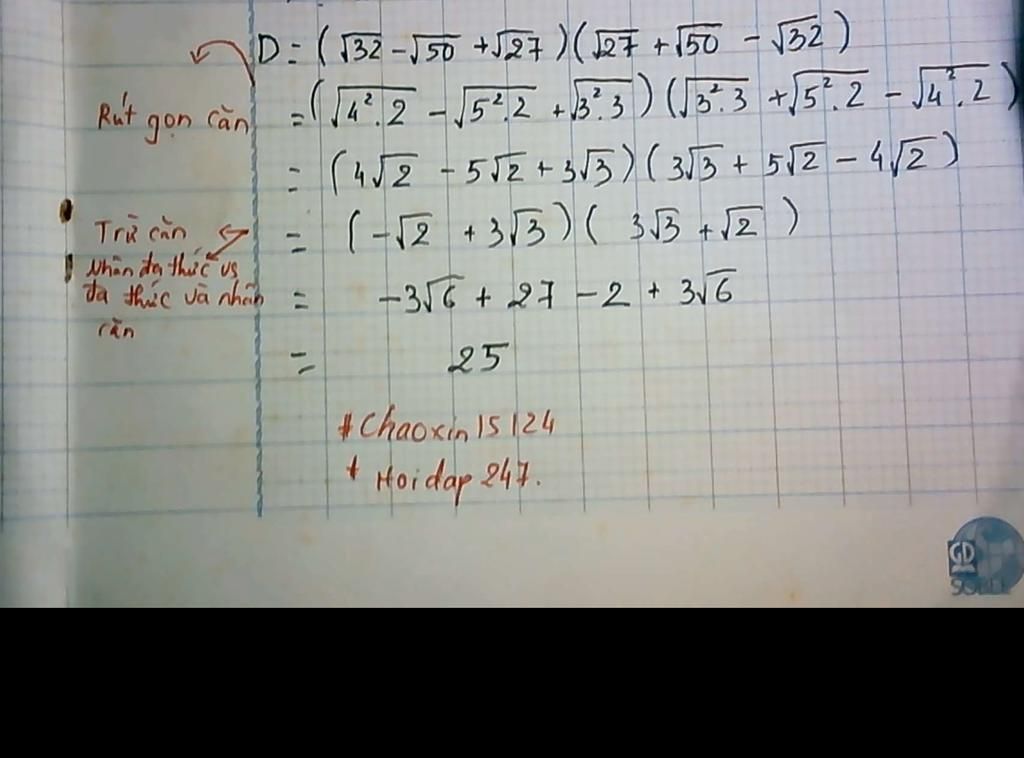 D = (√32 - √50 + √27)(√27 + √50 - √32)
Rút gọn căn
= (√4².2 - √5².2 + √3².3)(√3².3 + √5².2 - √4².2)
= (4√2 - 5√2 + 3√3)(3√3 + 5√2 - 4√2)
Trừ căn
= (-√2 + 3√3)(3√3 + √2)
Nhân đa thức vs
đa thức và nhân
căn
= -3√6 + 27 - 2 + 3√6
= 25
# Chaoxin15124
+ Hoidap 247.
GD